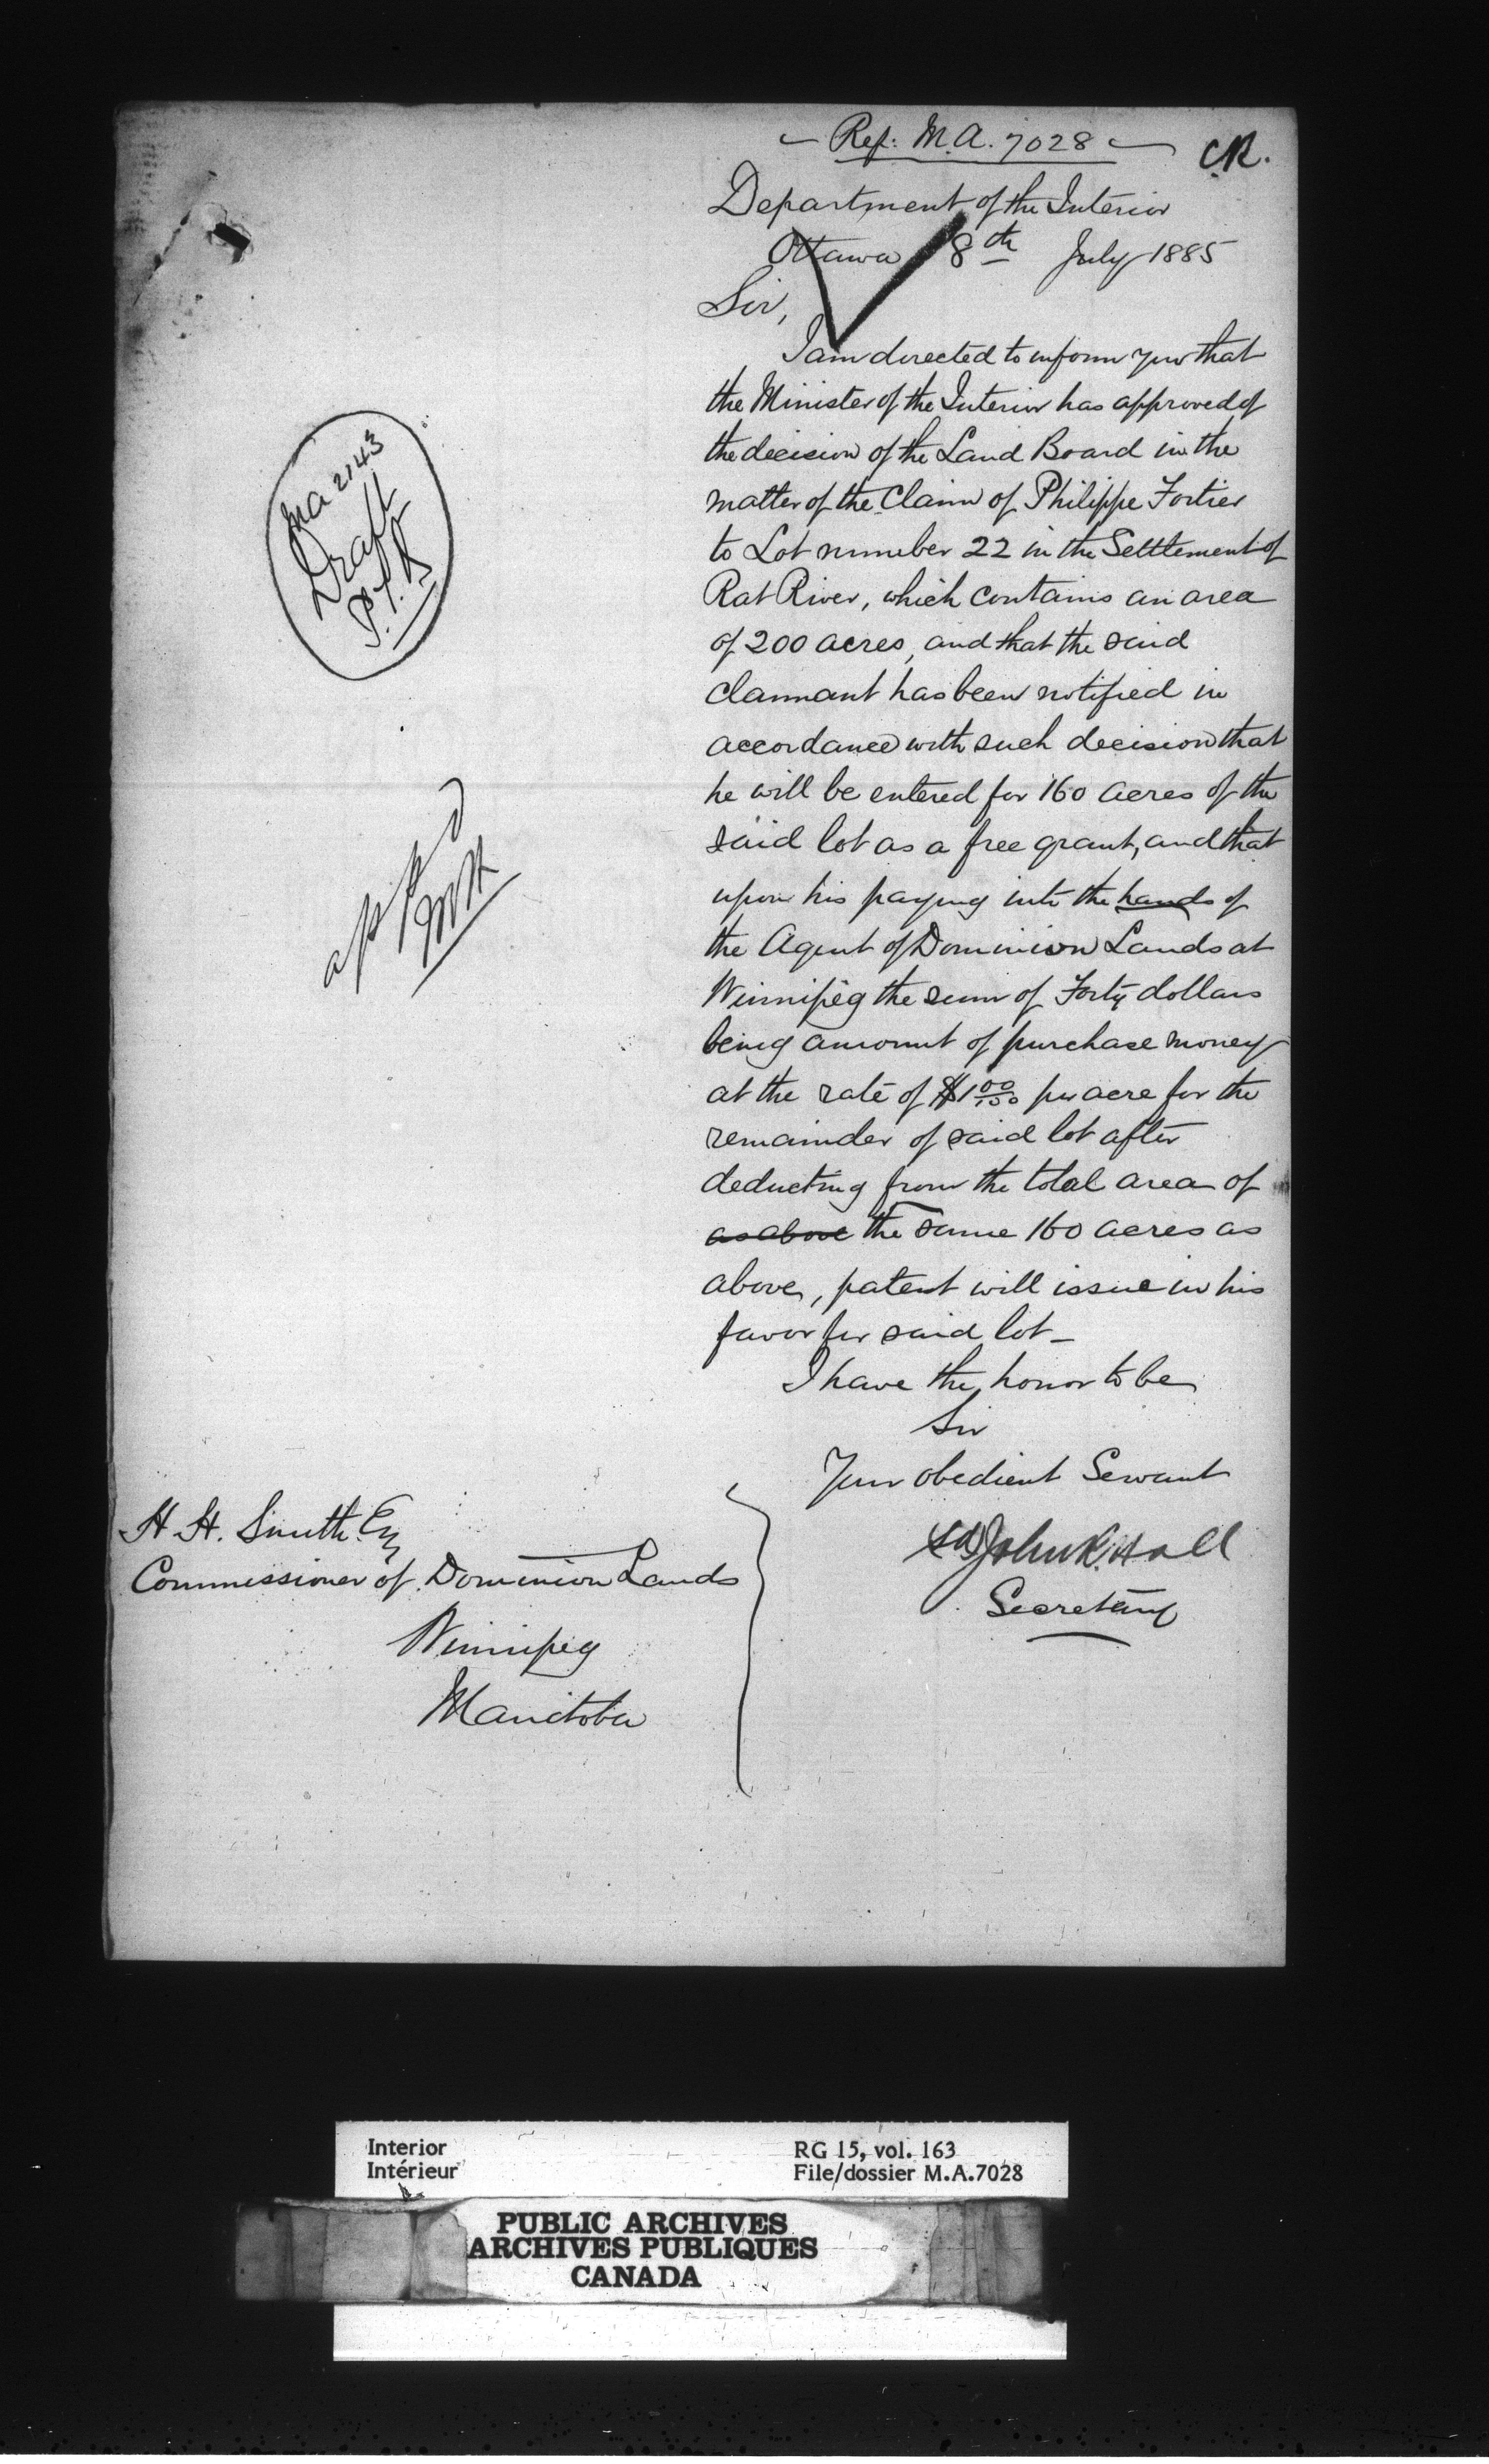 Ref: M.A. 7028
C.R.
Department of the Interior
Ottawa 8th July 1885
Sir,
I am directed to inform you that
the Minister of the Interior has approved of
the decision of the Land Board in the
matter of the Claim of Philippe Fortier
to Lot number 22 in the Settlement of
Rat River, which contains an area
of 200 acres, and that the said
claimant has been notified in
accordance with such decision that
he will be entered for 160 acres of the
said lot as a free grant, and that
upon his paying into the hands of
the Agent of Dominion Lands at
Winnipeg the sum of Forty dollars
being amount of purchase money
at the rate of $1 00/100 per acre for the
remainder of said lot after
deducting from the total area of
as above the same 160 acres as
above, patent will issue in his
favor for said lot_
I have the honor to be
Sir
Your obedient Servant
Sd John R. Hall
Secretary
Ma 2143
Draft
appd
H. H. Smith Esq
Commissioner of Dominion Lands
Winnipeg
Manitoba
Interior
Intérieur
RG 15, vol. 163
File/dossier M.A.7028
PUBLIC ARCHIVES
ARCHIVES PUBLIQUES
CANADA